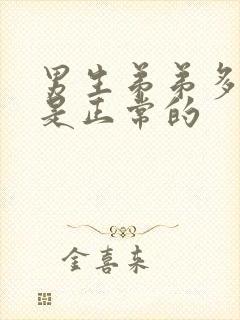 男生弟弟多
是正常的
金喜来